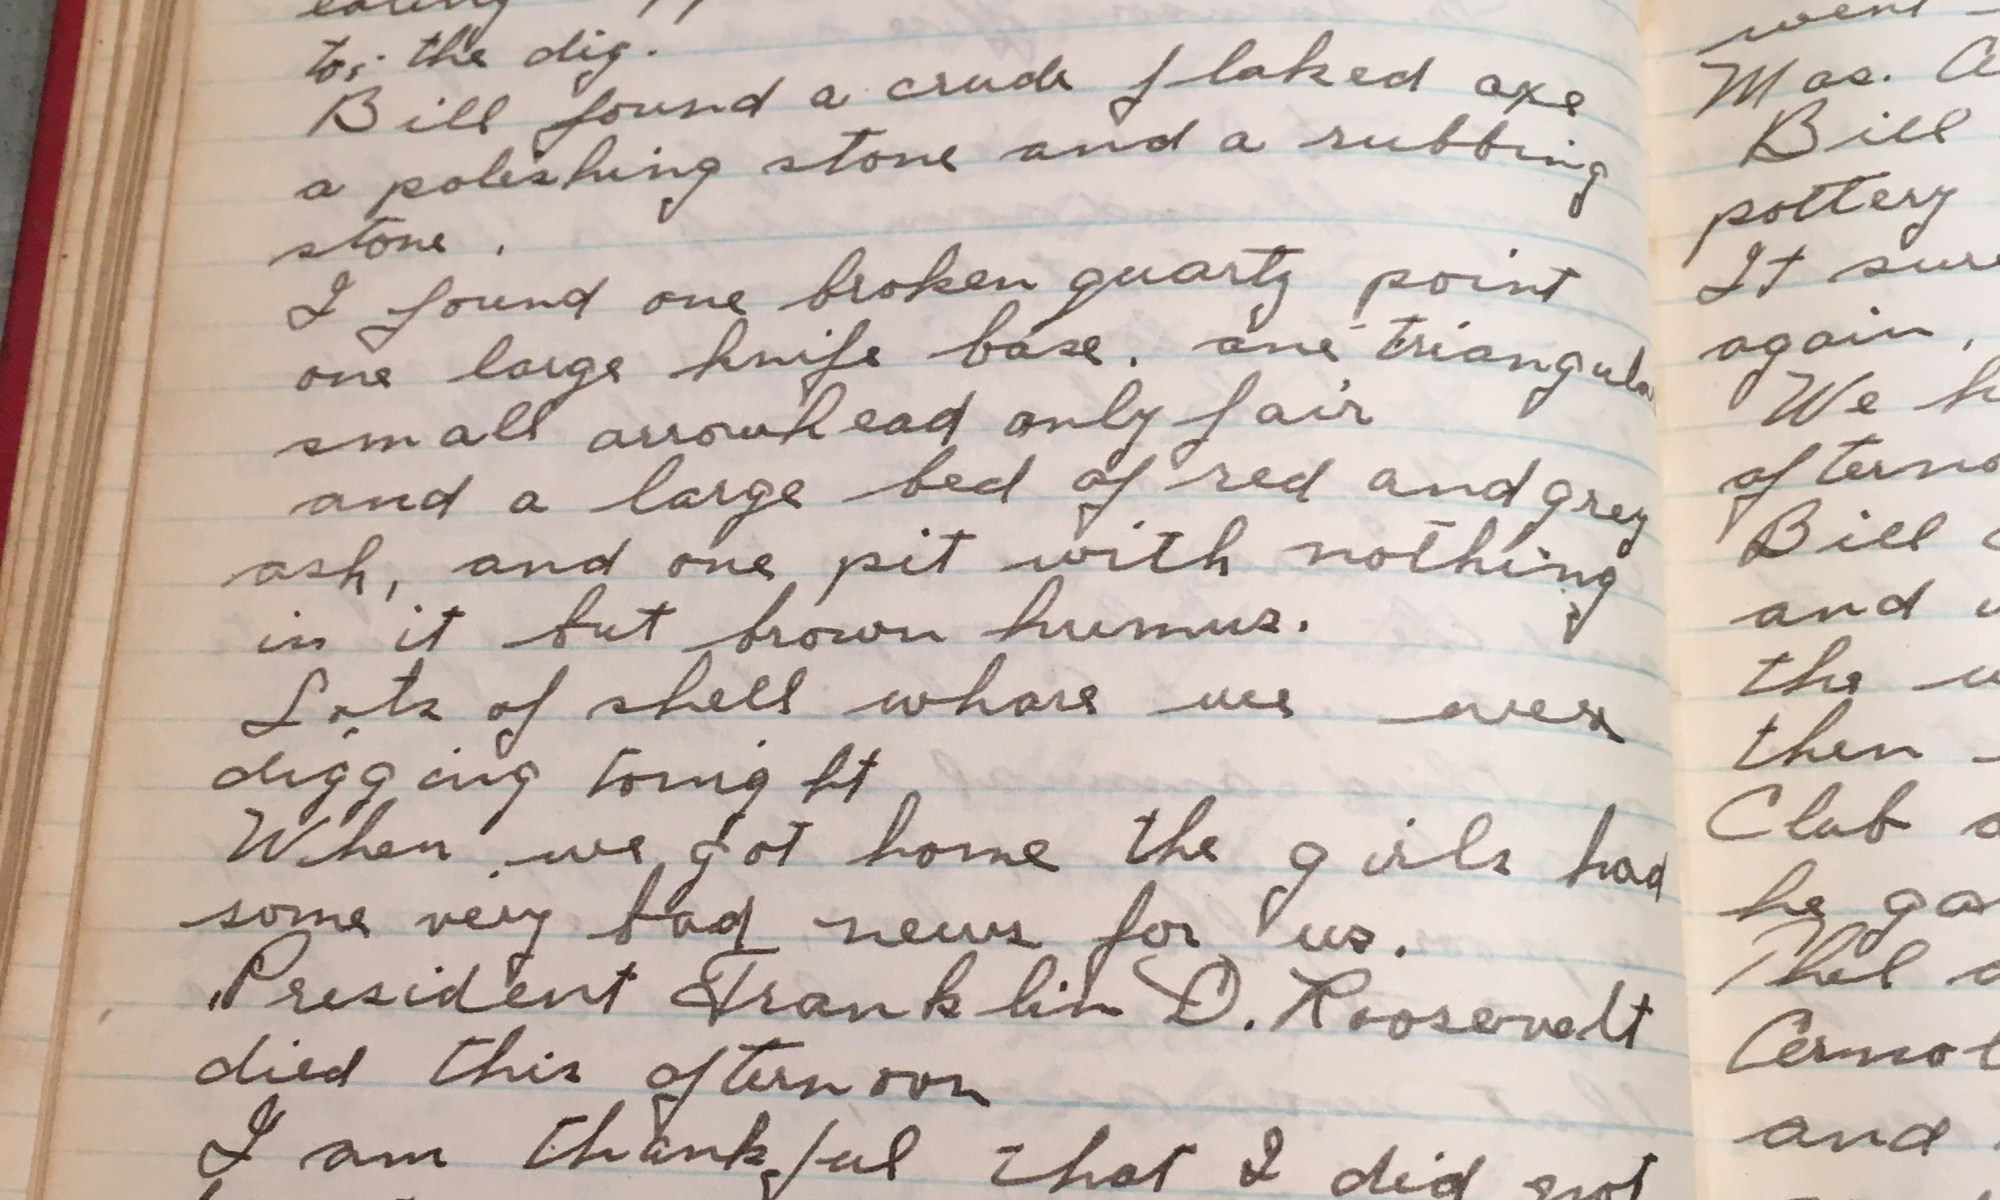 eating
to; the dig.
Bill found a crude flaked axe
a polishing stone and a rubbing
stone.
I found one broken quartz point
one large knife base. one triangular
small arrowhead only fair
and a large bed of red and grey
ash, and one pit with nothing
in it but brown humus.
Lots of shell whare we were
digging tonight
When we got home the girls had
some very bad news for us.
President Franklin D. Roosevelt
died this afternoon
I am thankful that I did not
went
Mac.
Bill
pottery
It sure
again,
We
Bill
and
the
then
Club
he
Thel
and